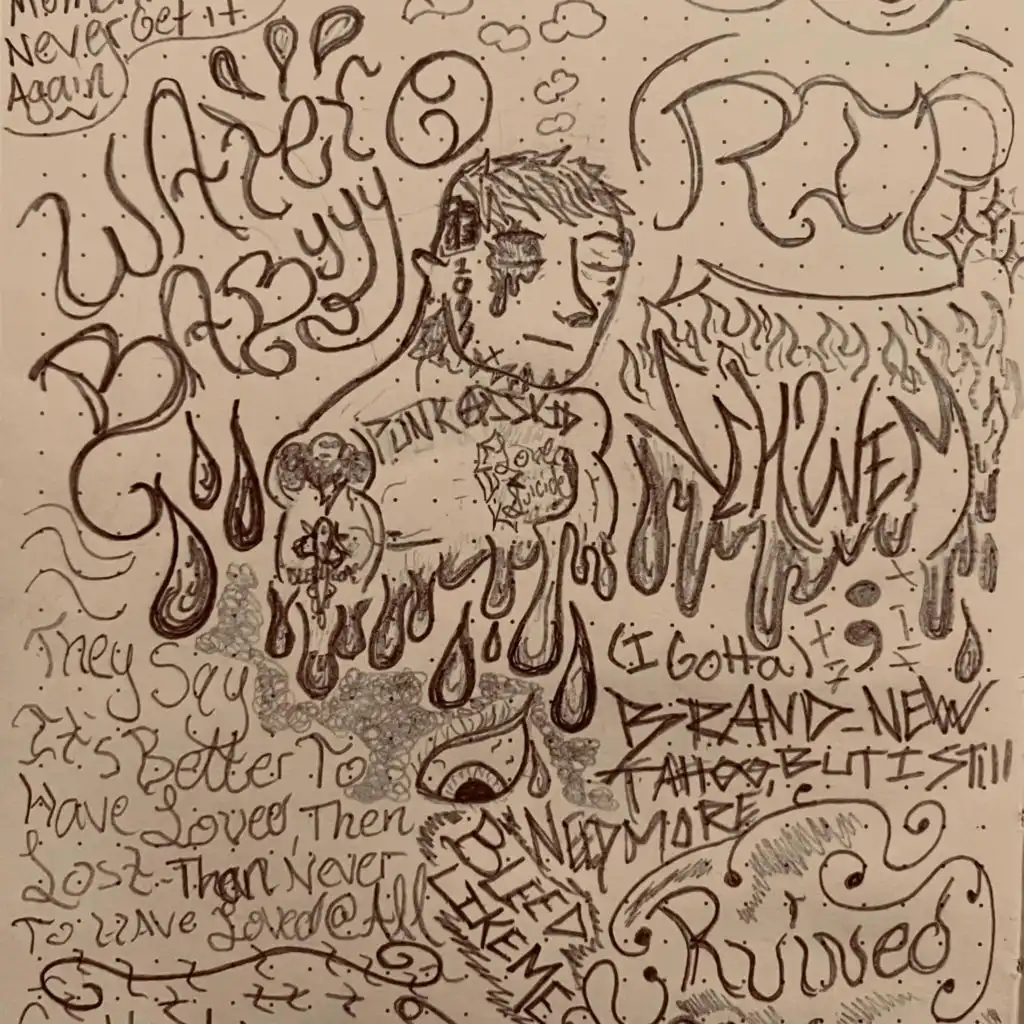 Never Get it
Again
Water
Babyyy
RIP
PUNK ASS KID
Love
Suicide
They Say
It's Better To
Have Loved, Then
Lost Than Never
To HAVE Loved @ All
(I Gotta)
BRAND-NEW
TAttOO, BUT I Still
NEED MORE
BLEED
LIKE ME
Ruined